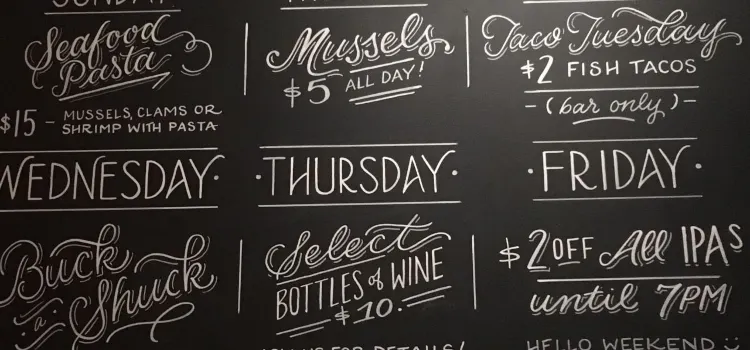 SUNDAY
Seafood
Pasta
$15 - MUSSELS, CLAMS OR
SHRIMP WITH PASTA
Mussels
$5 ALL DAY!
Taco Tuesday
$2 FISH TACOS
- (bar only) -
WEDNESDAY
Buck
a
Shuck
· THURSDAY ·
Select
BOTTLES of WINE
- $10. -
FOR DETAILS!
· FRIDAY ·
$2 OFF All IPAs
until 7PM
HELLO WEEKEND :)